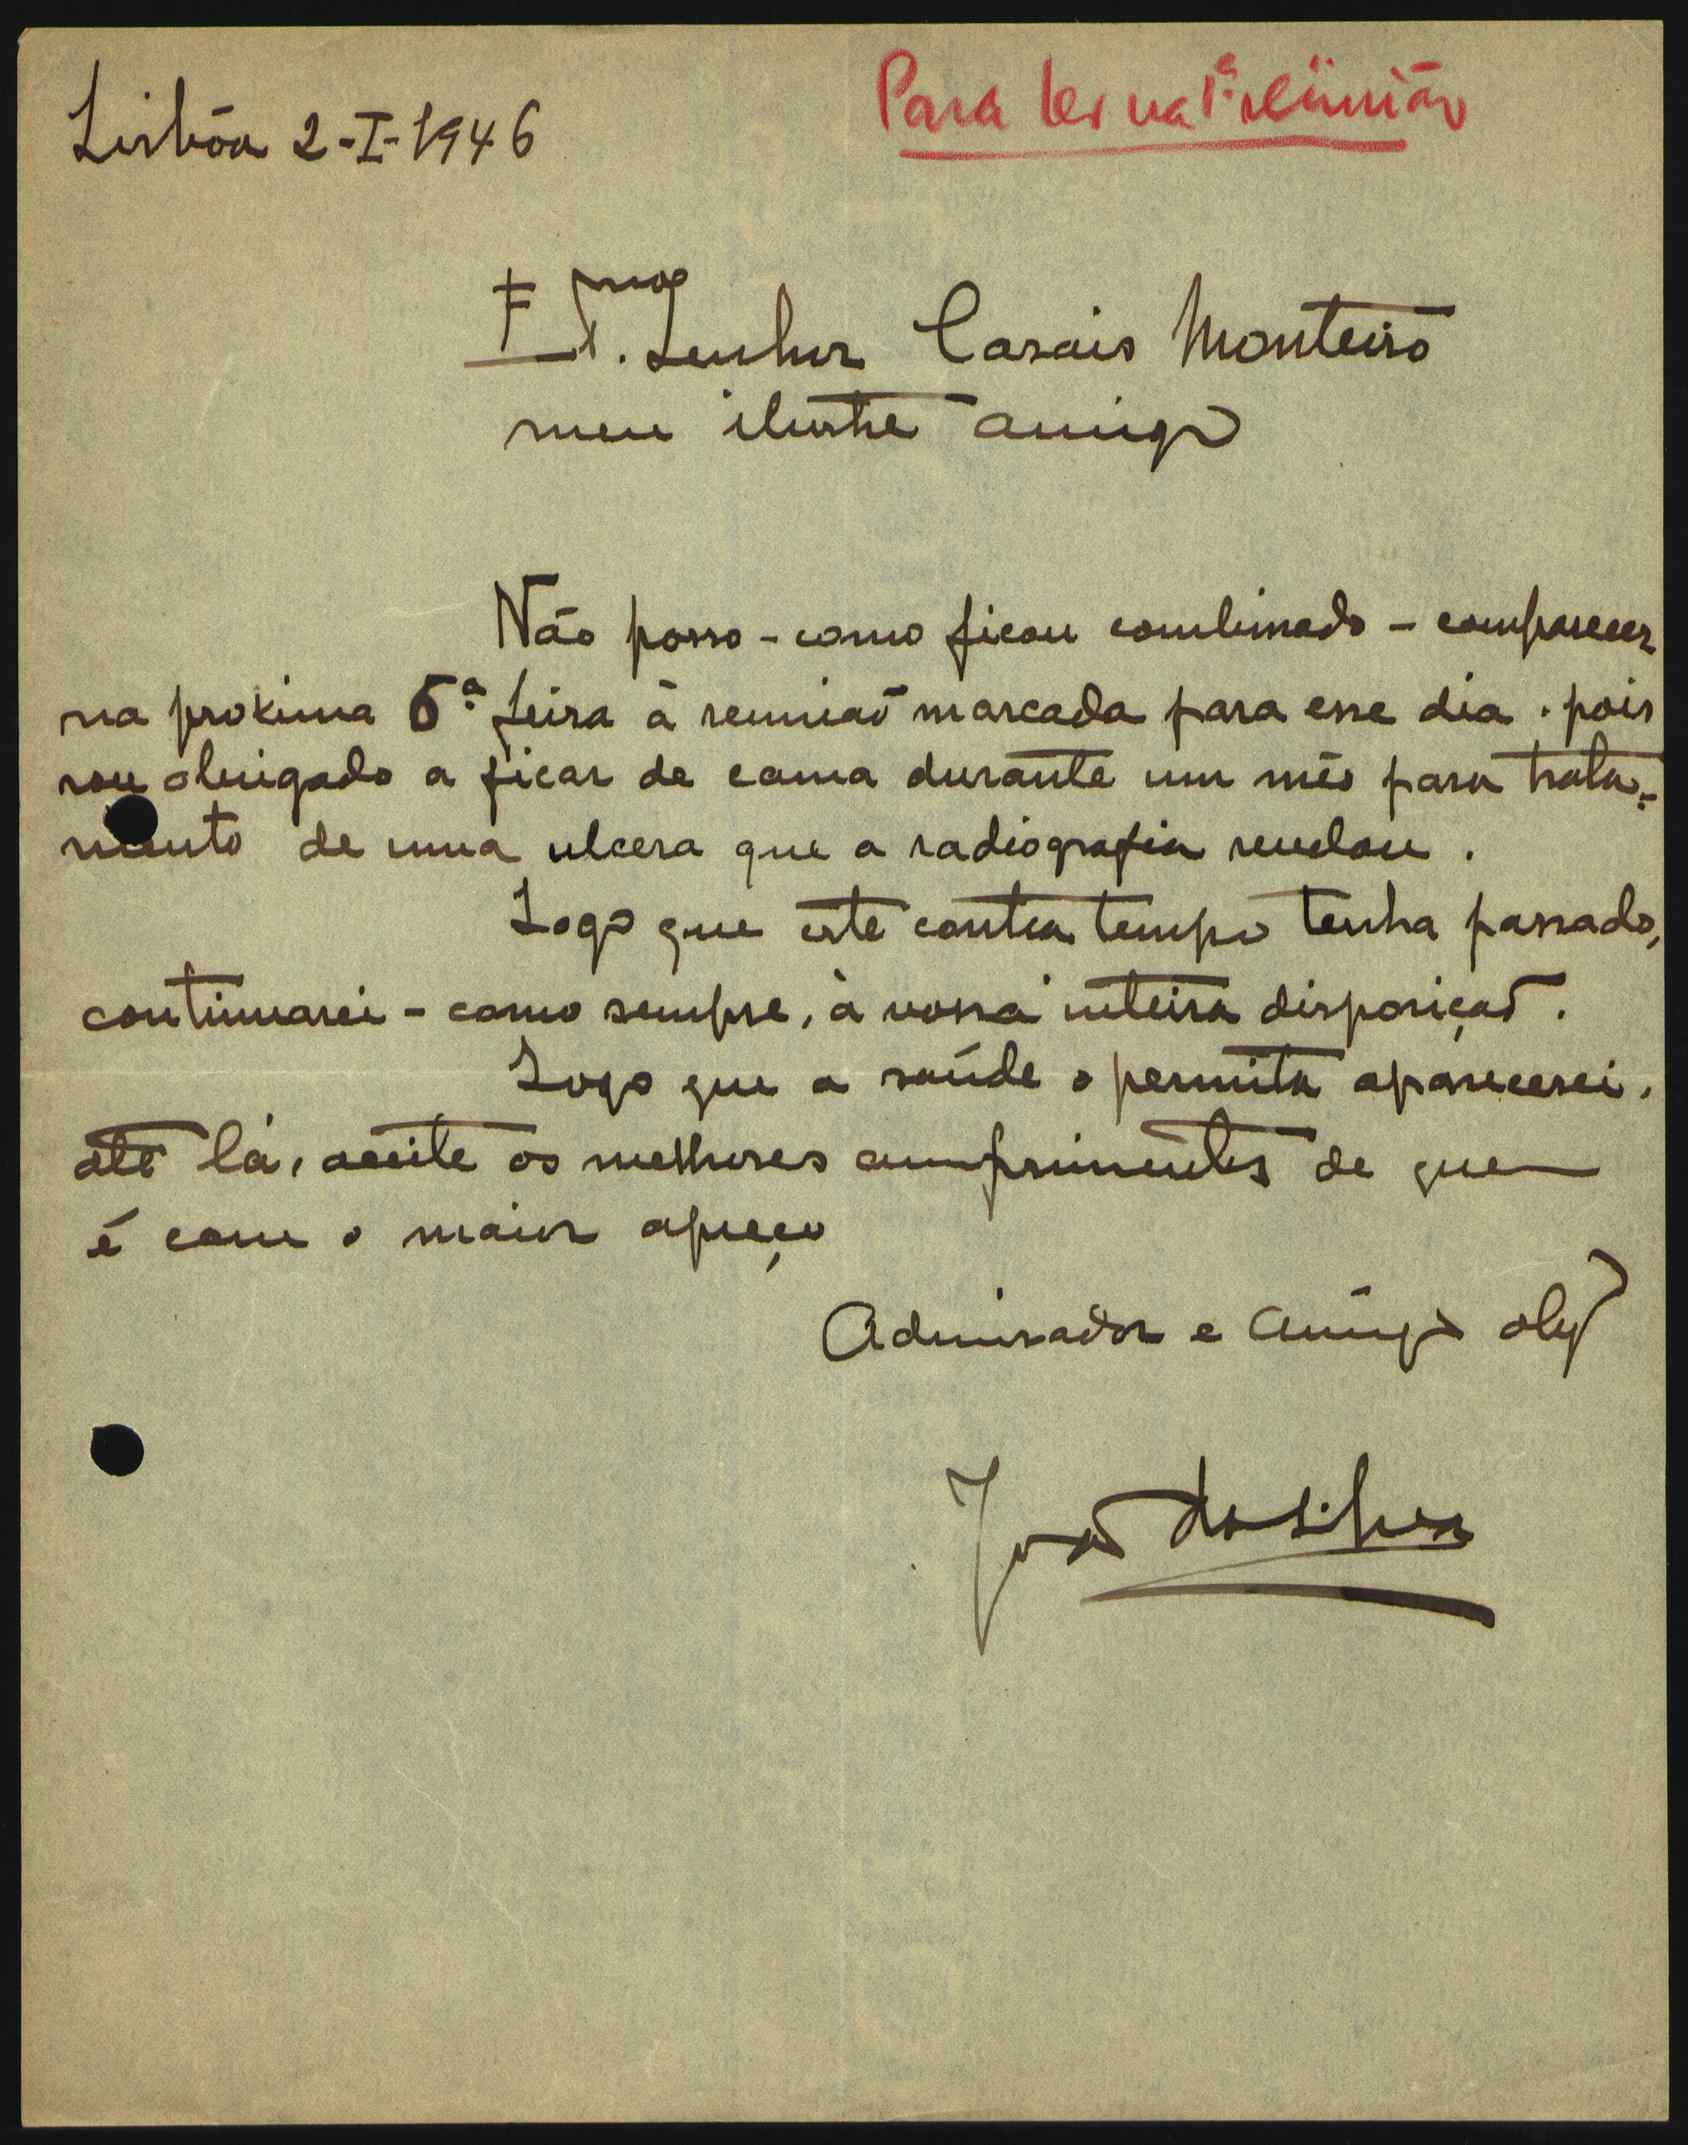 Lisbôa 2-I-1946
Para ler na 1ª reünião
Exmo. Senhor Casais Monteiro
meu ilustre amigo
Não posso - como ficou combinado - comparecer
na proxima 6ª feira à reunião marcada para esse dia. pois
sou obrigado a ficar de cama durante um mês para trata-
mento de uma ulcera que a radiografia revelou.
Logo que este contra tempo tenha passado,
continuarei - como sempre, à vossa inteira disposição.
Logo que a saúde o permita aparecerei.
até lá, aceite os melhores cumprimentos de quem
é com o maior apreço
Admirador e amigo obgº
João da Silva